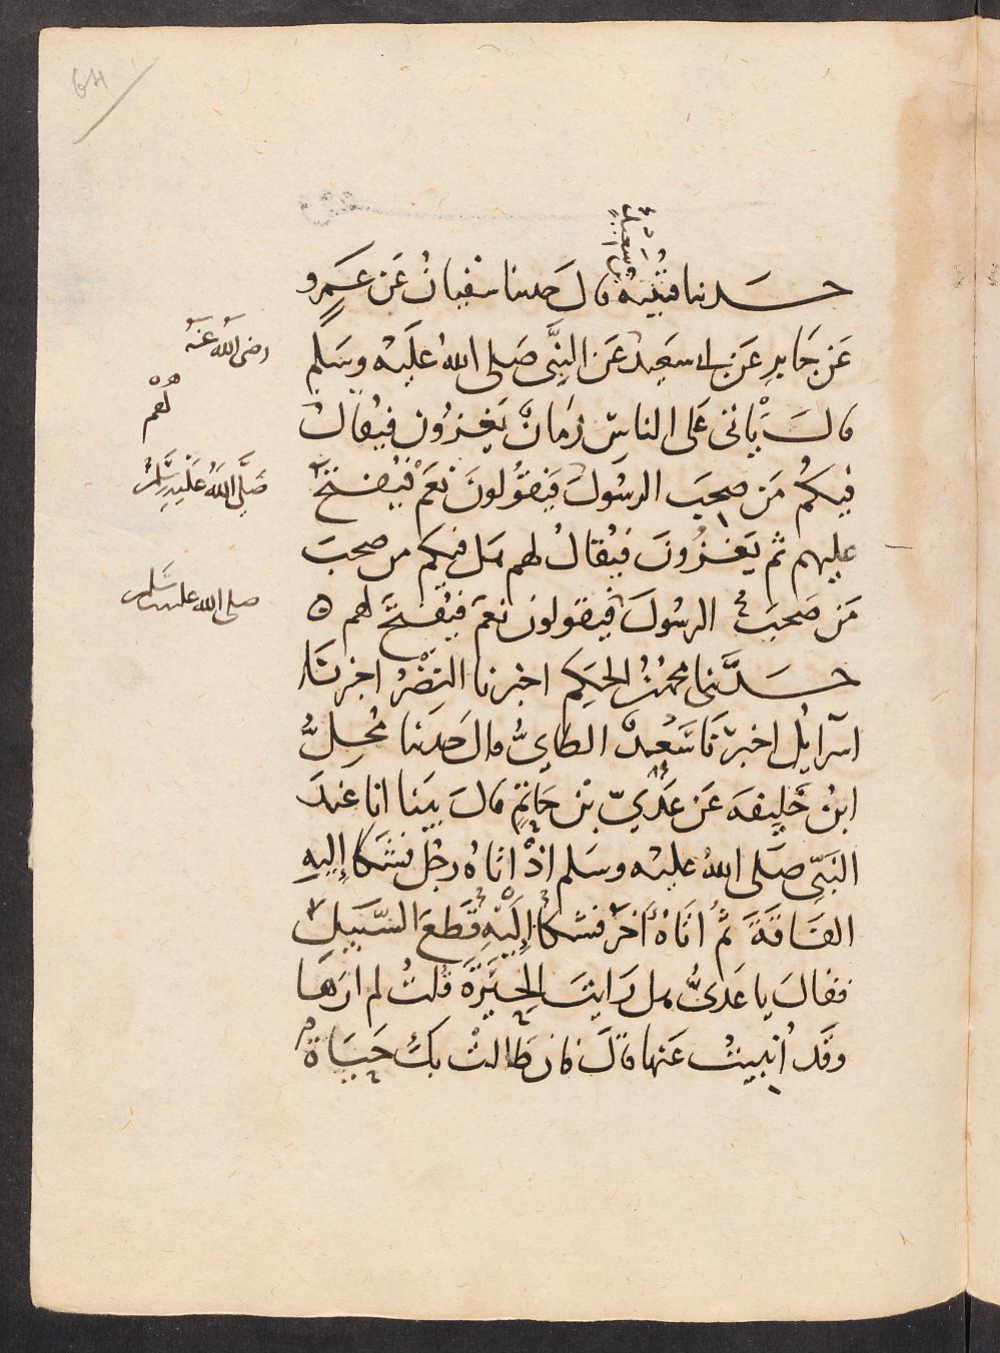 بن سعيد
حدثنا قتيبة قال حدثنا سفيان عن عمرو
عن جابر عن ابي سعيد عن النبي صلى الله عليه وسلم
رضى الله عنه
قال يأتى على الناس زمان يغزون فيقال
لهم
فيكم من صحب الرسول فيقولون نعم فيفتح
صلى الله عليه وسلم
عليهم ثم يغزون فيقال لهم هل فيكم من صحب
من صحب الرسول فيقولون نعم فيفتح لهم ه
صلى الله عليه وسلم
حدثنى محمد بن الحكم اخبرنا النضر اخبرنا
اسرايل اخبرنا سعد الطاي قال حدثنا محل
ابن خليفة عن عدي بن حاتم قال بينا انا عند
النبي صلى الله عليه وسلم اذ اتاه رجل فشكا إليه
الفاقة ثم اتاه آخر فشكا إليه قطع السبيل
فقال يا عدى هل رايت الحيرة قلت لم ارها
وقد انبيت عنها قال فان طالت بك حياة